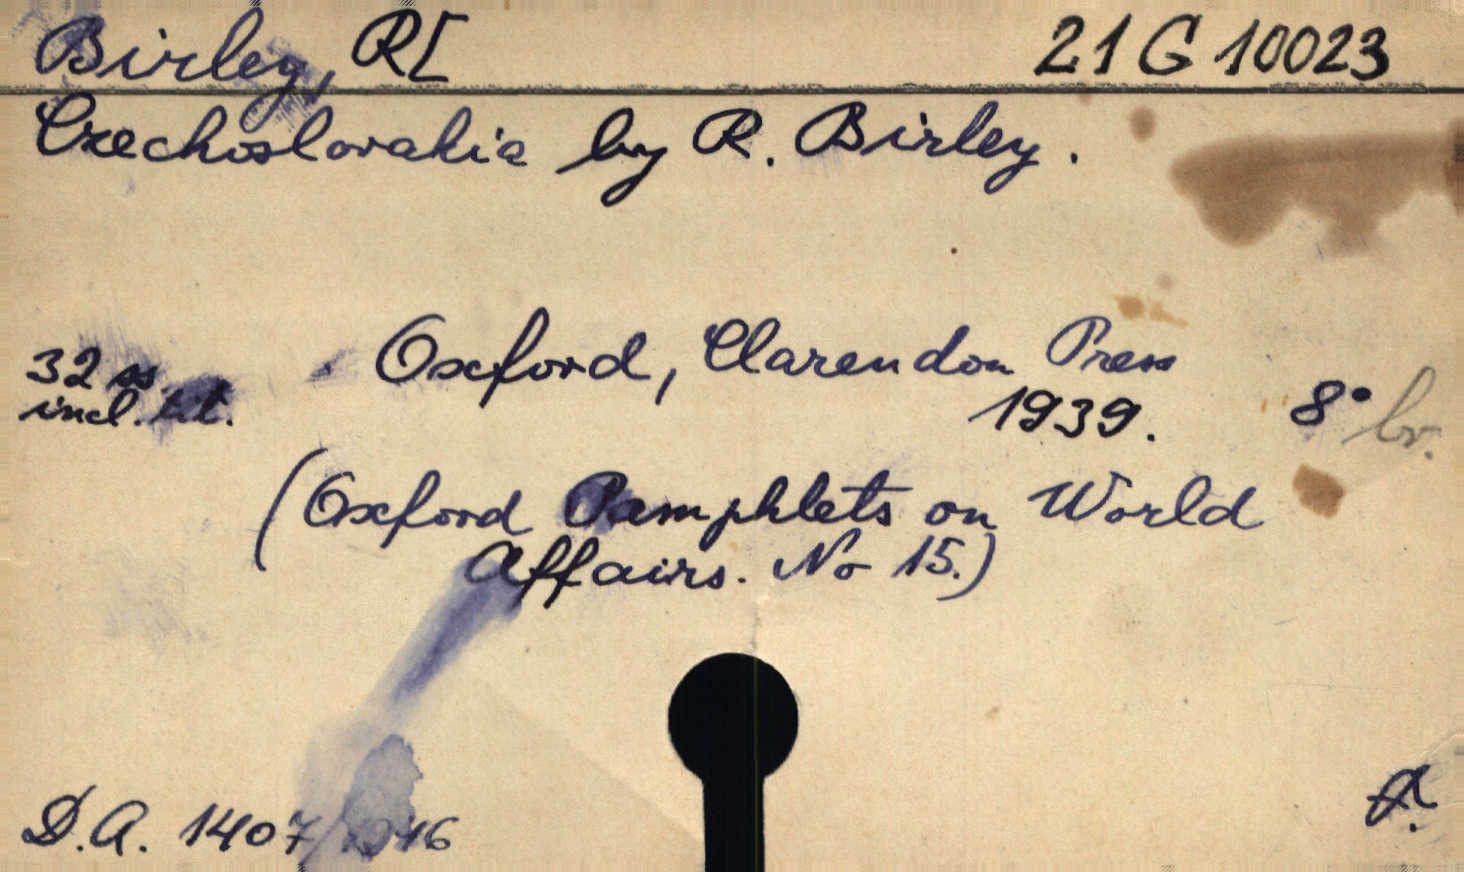 Birley, R[ 21 G 10023
Czechoslovakia by R. Birley.
Oxford, Clarendon Press
32 ss.
incl. tit.
1939. 8° br.
(Oxford Pamphlets on World
Affairs. No 15.)
D.A. 1407/1946